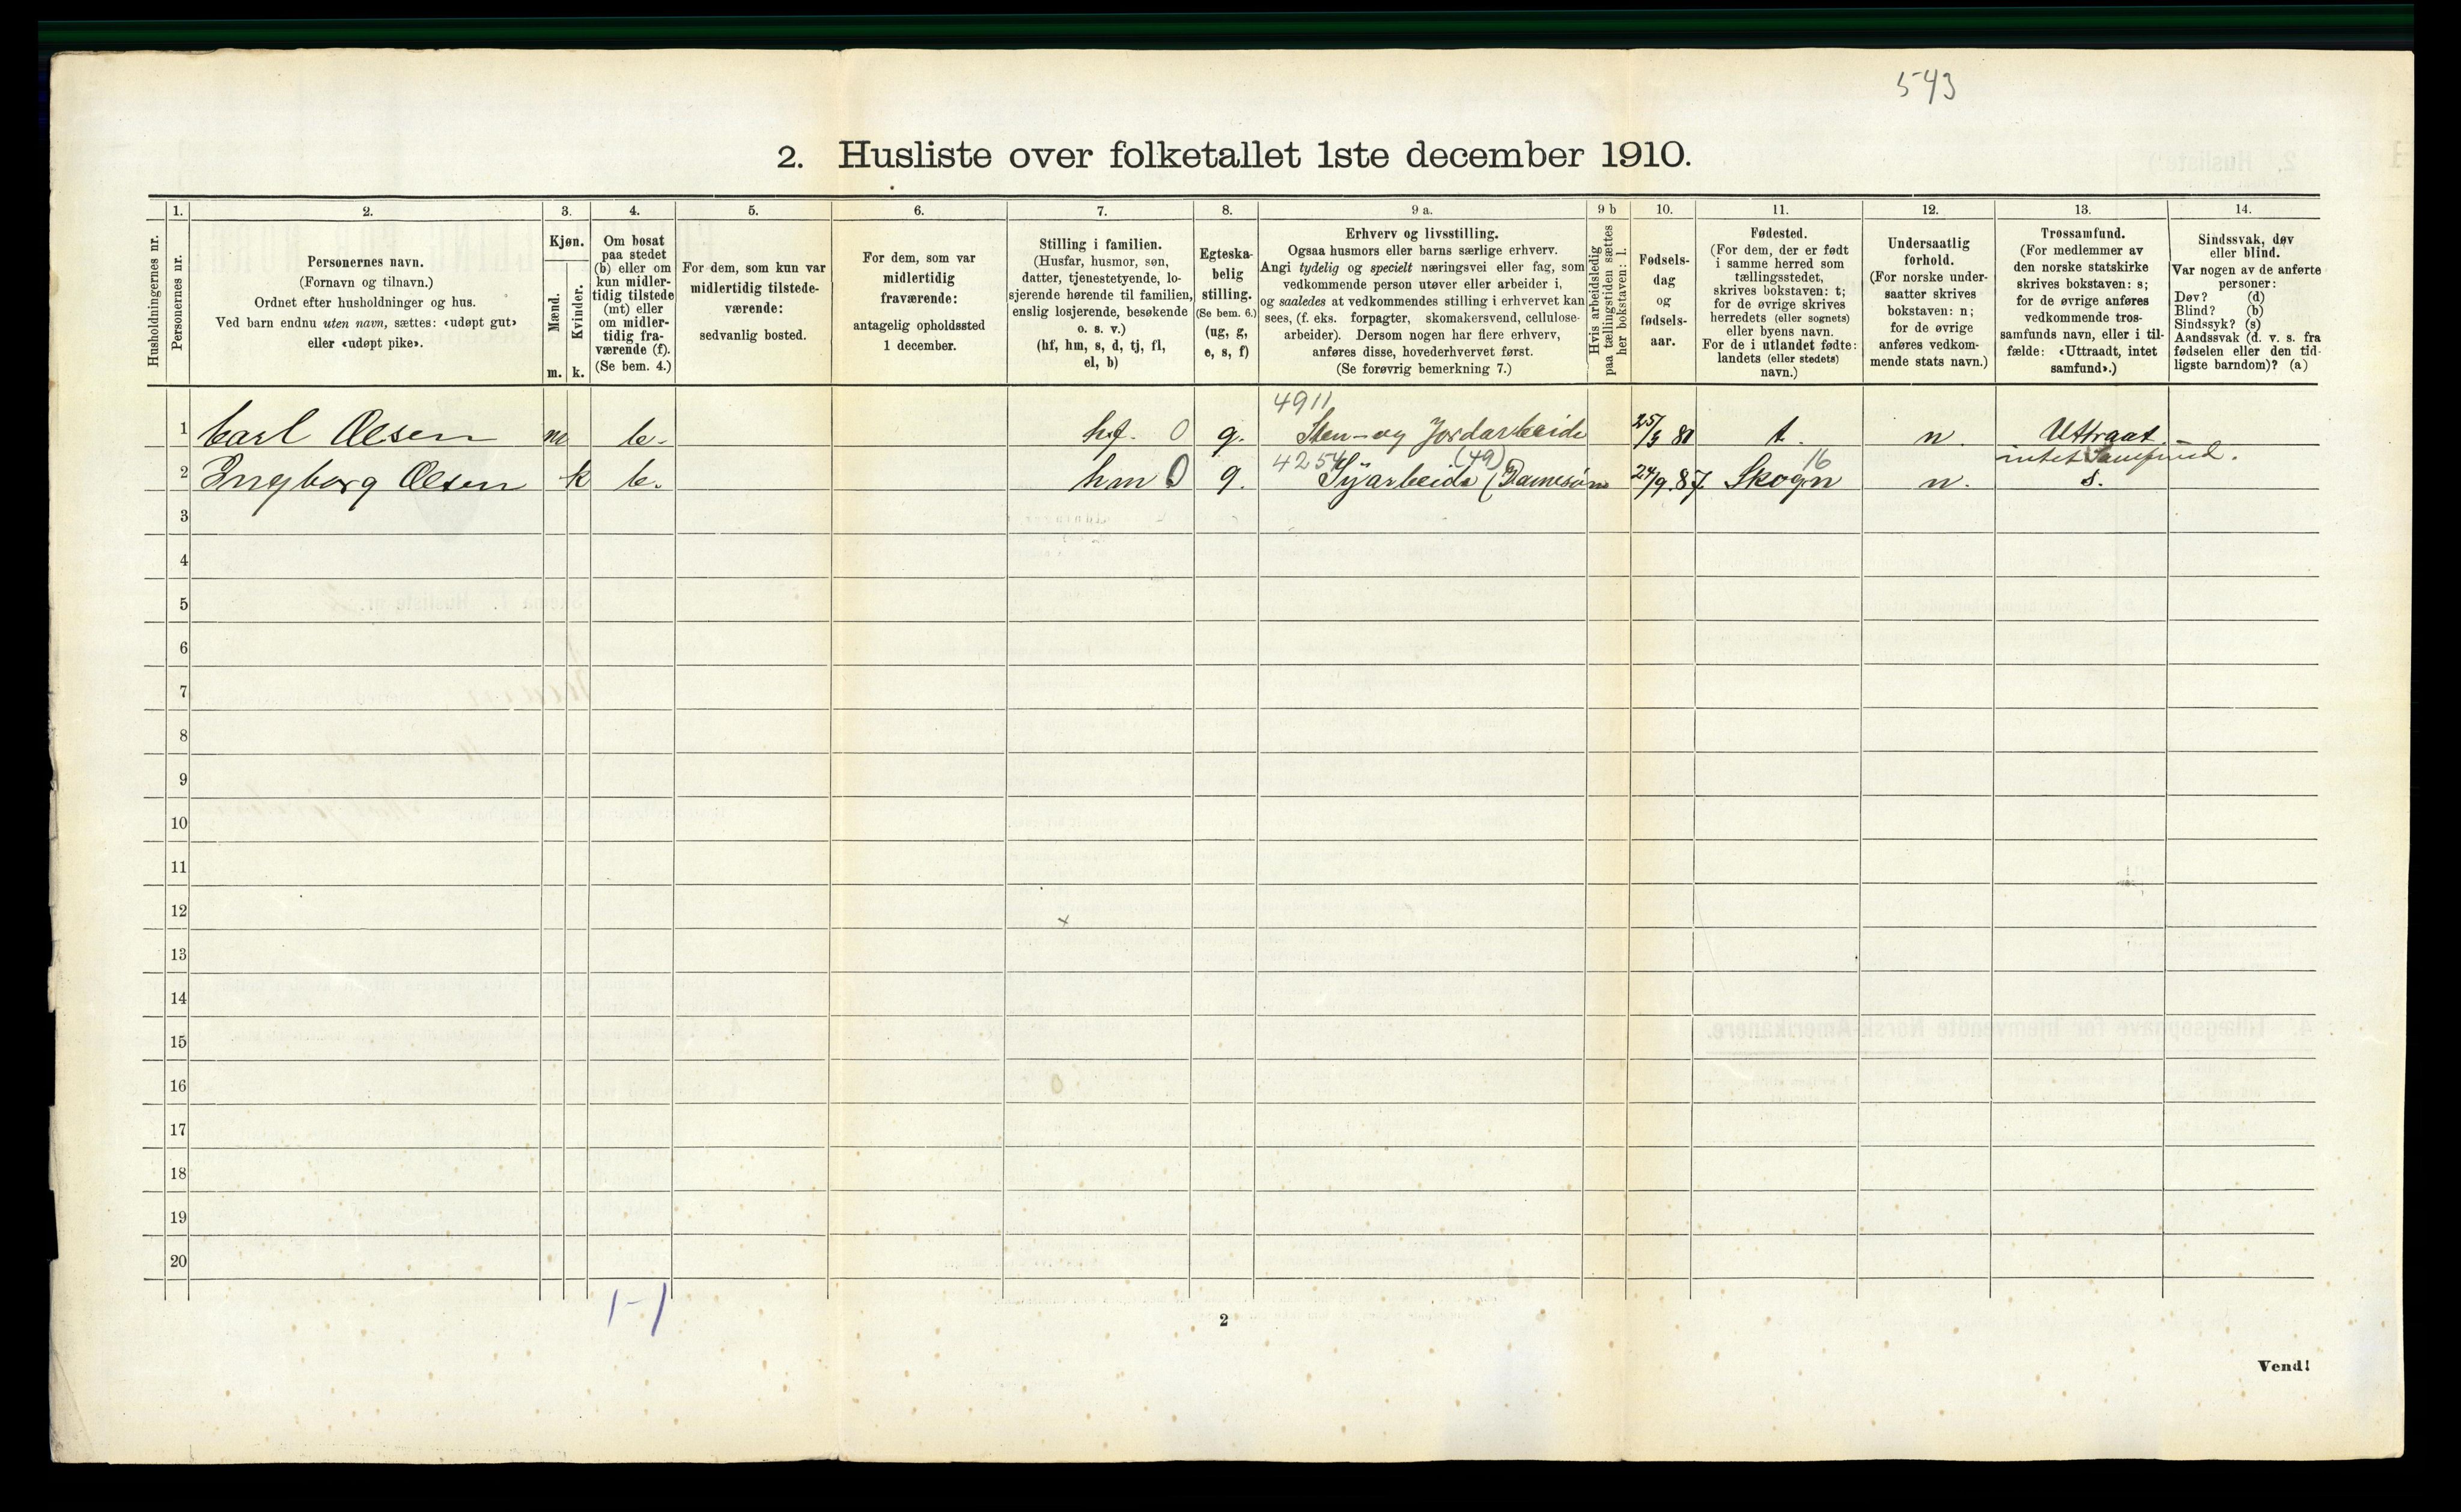 543
2. Husliste over folketallet 1ste december 1910.
1. 2. 3. 4. 5. 6. 7. 8. 9 a. 9 b 10. 11. 12. 13. 14.
Husholdningernes nr.
Personernes nr.
Personernes navn.
(Fornavn og tilnavn.)
Ordnet efter husholdninger og hus.
Ved barn endnu uten navn, sættes: «udøpt gut»
eller «udøpt pike».
Kjøn.
Mænd.
Kvinder.
m. k.
Om bosat
paa stedet
(b) eller om
kun midler-
tidig tilstede
(mt) eller
om midler-
tidig fra-
værende (f).
(Se bem. 4.)
For dem, som kun var
midlertidig tilstede-
værende:
sedvanlig bosted.
For dem, som var
midlertidig
fraværende:
antagelig opholdssted
1 december.
Stilling i familien.
(Husfar, husmor, søn,
datter, tjenestetyende, lo-
sjerende hørende til familien,
enslig losjerende, besøkende
o. s. v.)
(hf, hm, s, d, tj, fl,
el, b)
Egteska-
belig
stilling.
(Se bem. 6.)
(ug, g,
e, s, f)
Erhverv og livsstilling.
Ogsaa husmors eller barns særlige erhverv.
Angi tydelig og specielt næringsvei eller fag, som
vedkommende person utøver eller arbeider i,
og saaledes at vedkommendes stilling i erhvervet kan
sees, (f. eks. forpagter, skomakersvend, cellulose-
arbeider). Dersom nogen har flere erhverv,
anføres disse, hovederhvervet først.
(Se forøvrig bemerkning 7.)
Hvis arbeidsledig
paa tællingstiden sættes
her bokstaven: l.
Fødsels-
dag
og
fødsels-
aar.
Fødested.
(For dem, der er født
i samme herred som
tællingsstedet,
skrives bokstaven: t;
for de øvrige skrives
herredets (eller sognets)
eller byens navn.
For de i utlandet fødte:
landets (eller stedets)
navn.)
Undersaatlig
forhold.
(For norske under-
saatter skrives
bokstaven: n;
for de øvrige
anføres vedkom-
mende stats navn.)
Trossamfund.
(For medlemmer av
den norske statskirke
skrives bokstaven: s;
for de øvrige anføres
vedkommende tros-
samfunds navn, eller i til-
fælde: «Uttraadt, intet
samfund».)
Sindssvak, døv
eller blind.
Var nogen av de anførte
personer:
Døv? (d)
Blind? (b)
Sindssyk? (s)
Aandssvak (d. v. s. fra
fødselen eller den tid-
ligste barndom)? (a)
4911
1 Carl Olsen m b. hf. 0 g. Sten- og Jordarbeide 25/3 80 t. n. Uttraat.
intet Samfund.
4254 (49) 16
2 Ingborg Olsen k b. hm 0 g. Syarbeide (Damesøm 24/9.87. Skogn n. s.
3
4
5
6
7
8
9
10
11
12
13
14
15
16
17
18
19
20
1-1
2
Vend!